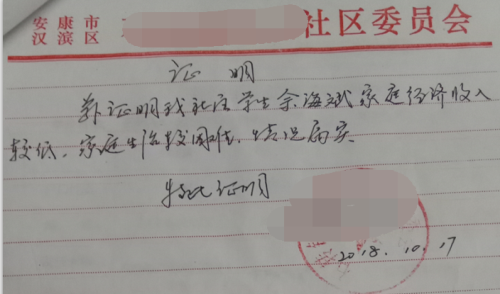 安康市
汉滨区 社区委员会
证明
兹证明我社区学生余海斌家庭经济收入
较低，家庭生活较困难，情况属实
特此证明
2018.10.17